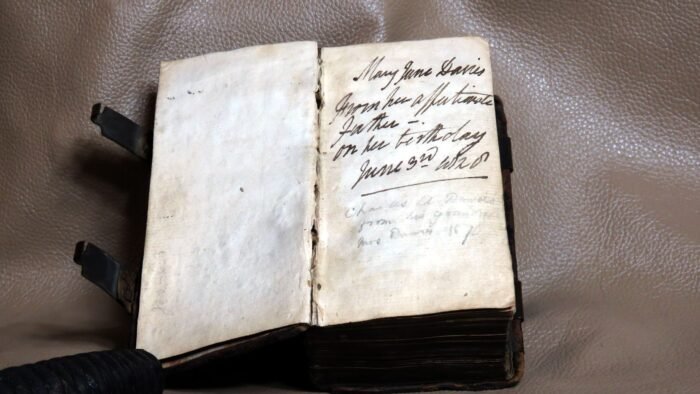 Mary Jane Davies
From her affectionate
Father -
on her birthday
June 3rd
Davies
from his
Mrs Davies